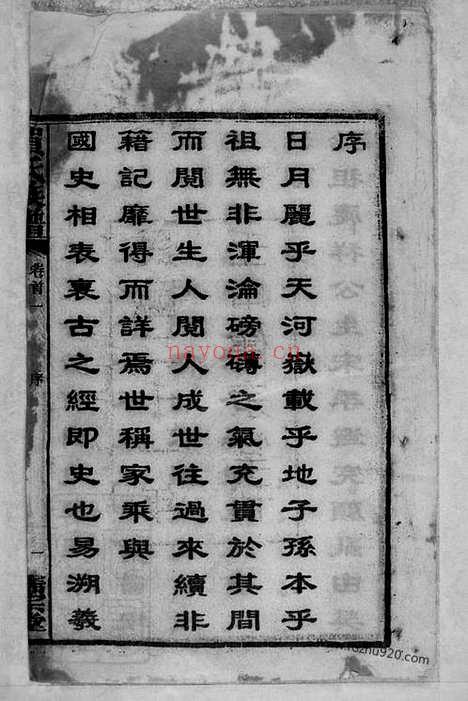 序
日月麗乎天河嶽載乎地子孫本乎
祖無非渾淪磅礴之氣充貫於其間
而閱世生人閱人成世往過來續非
籍記靡得而詳焉世稱家乘與
國史相表裏古之經即史也易溯羲
卷首一
序
一
nayona.cn